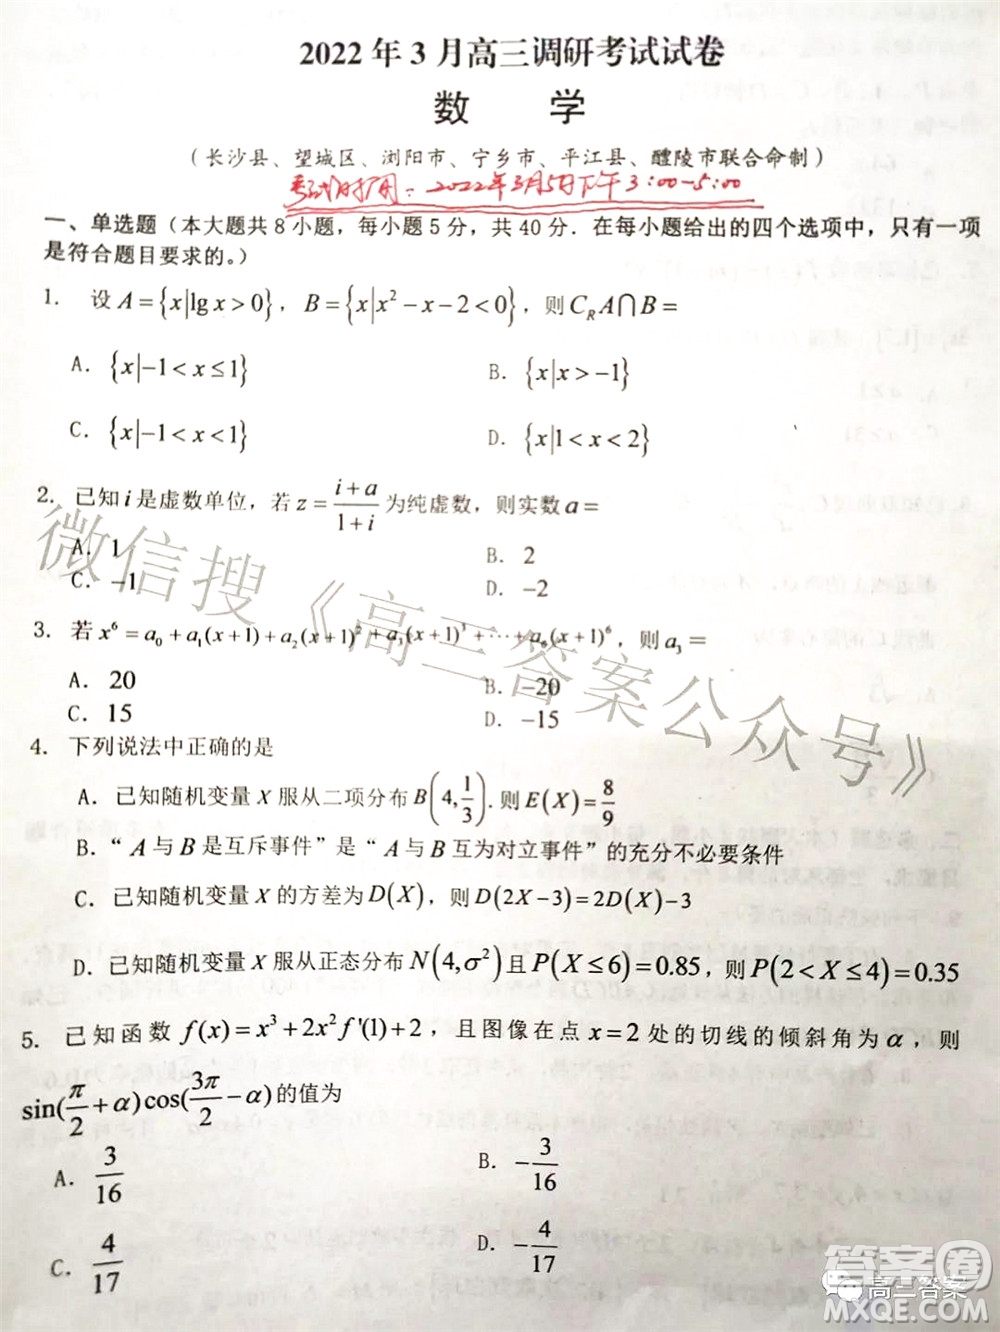 2022 年 3 月高三调研考试试卷
数 学
（长沙县、望城区、浏阳市、宁乡市、平江县、醴陵市联合命制）
考试时间：2022年3月5日下午3:00-5:00
一、单选题（本大题共 8 小题，每小题 5 分，共 40 分．在每小题给出的四个选项中，只有一项
是符合题目要求的。）
1. 设 A={x|lg x>0}，B={x|x²-x-2<0}，则 C_R A∩B=
A. {x|-1<x≤1} B. {x|x>-1}
C. {x|-1<x<1} D. {x|1<x<2}
2. 已知 i 是虚数单位，若 z=(i+a)/(1+i) 为纯虚数，则实数 a=
A. 1 B. 2
C. -1 D. -2
3. 若 x⁶=a₀+a₁(x+1)+a₂(x+1)²+a₃(x+1)³+⋯+a₆(x+1)⁶，则 a₃=
A. 20 B. -20
C. 15 D. -15
4. 下列说法中正确的是
A. 已知随机变量 X 服从二项分布 B(4,1/3).则 E(X)=8/9
B. “A 与 B 是互斥事件”是“A 与 B 互为对立事件”的充分不必要条件
C. 已知随机变量 X 的方差为 D(X)，则 D(2X-3)=2D(X)-3
D. 已知随机变量 X 服从正态分布 N(4,σ²) 且 P(X≤6)=0.85，则 P(2<X≤4)=0.35
5. 已知函数 f(x)=x³+2x²f'(1)+2，且图像在点 x=2 处的切线的倾斜角为 α，则
sin(π/2+α)cos(3π/2-α)的值为
A. 3/16 B. -3/16
C. 4/17 D. -4/17
微信搜《高三答案公众号》
答案圈
高三答案
MXQE.COM